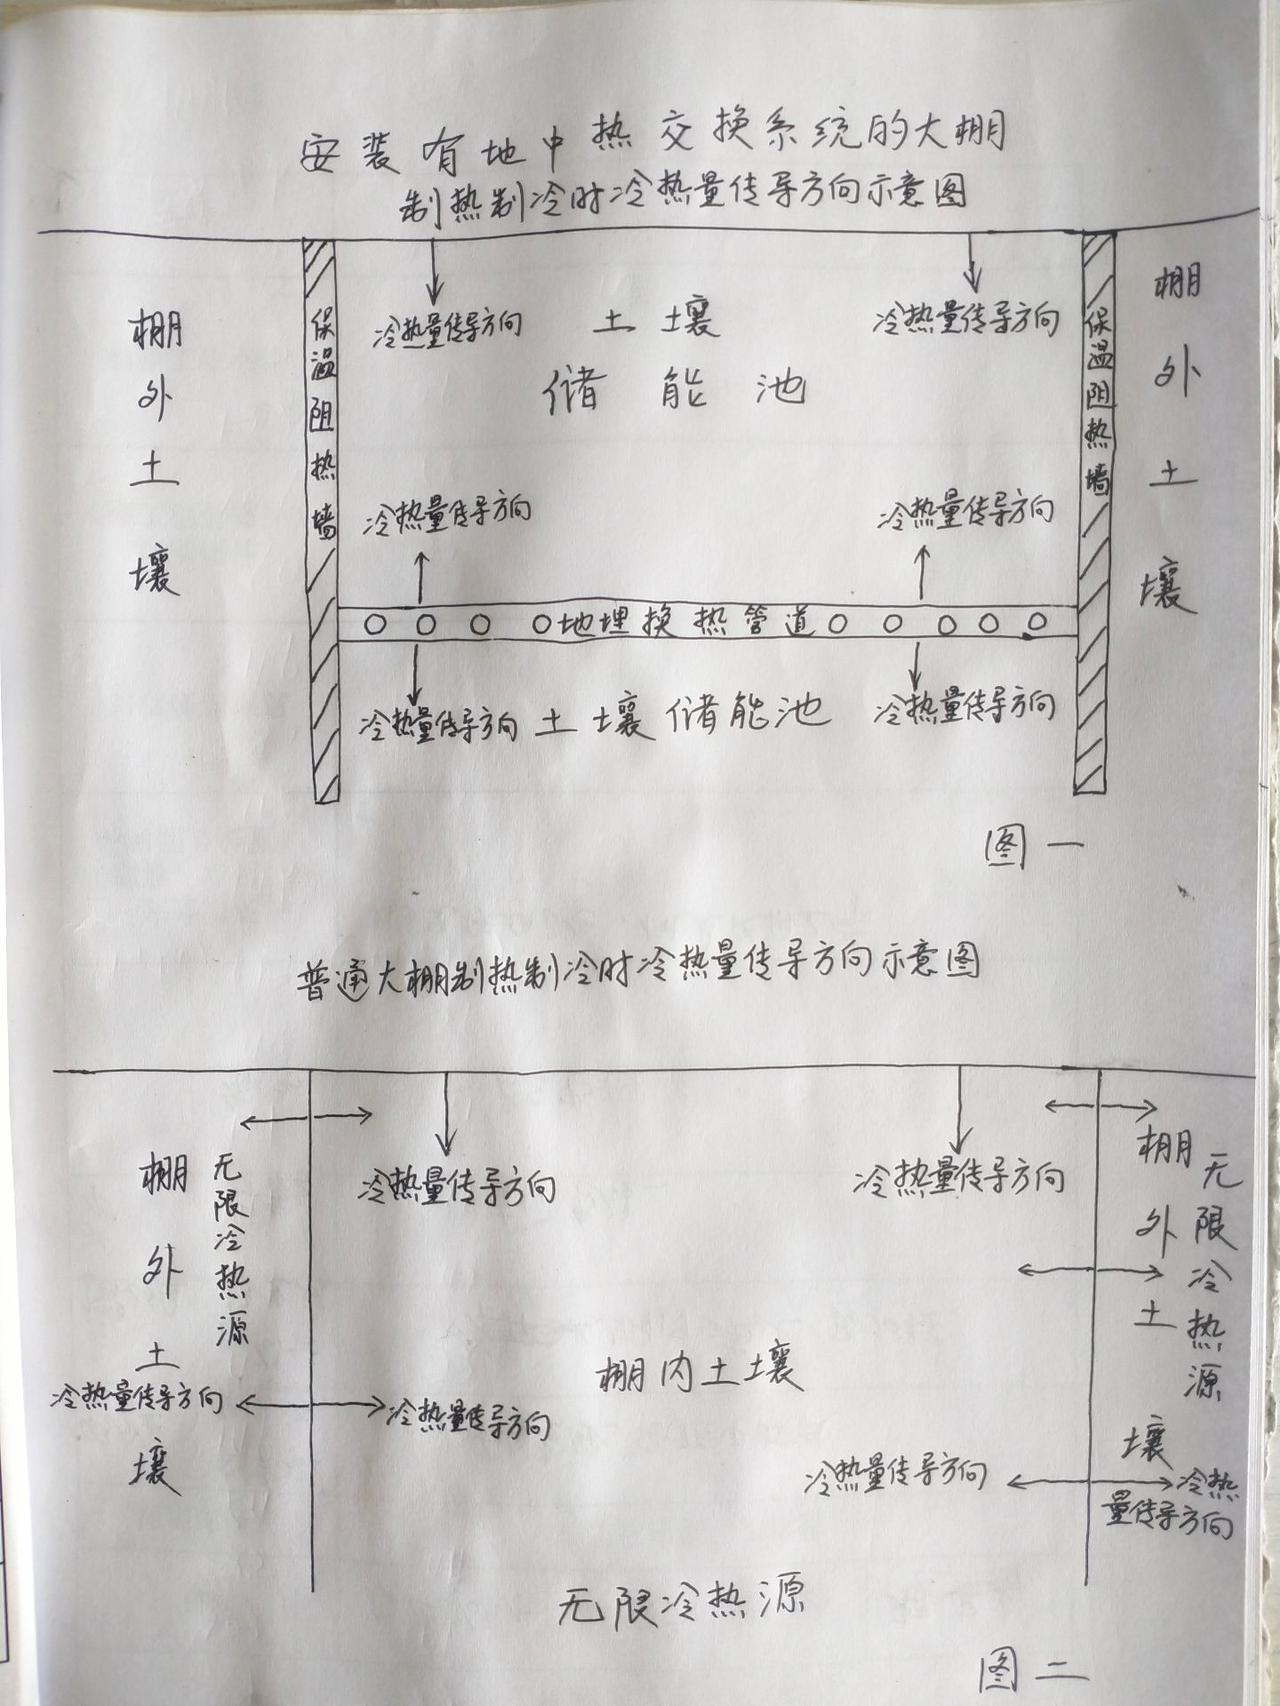 安装有地中热交换系统的大棚
制热制冷时冷热量传导方向示意图
棚外土壤
保温阻热墙
冷热量传导方向
土壤
储能池
冷热量传导方向
保温阻热墙
棚外土壤
冷热量传导方向
冷热量传导方向
地埋换热管道
冷热量传导方向
土壤储能池
冷热量传导方向
图一
普通大棚制热制冷时冷热量传导方向示意图
棚外土壤
无限冷热源
冷热量传导方向
冷热量传导方向
棚外土壤
无限冷热源
棚内土壤
冷热量传导方向
冷热量传导方向
冷热量传导方向
冷热
量传导方向
无限冷热源
图二